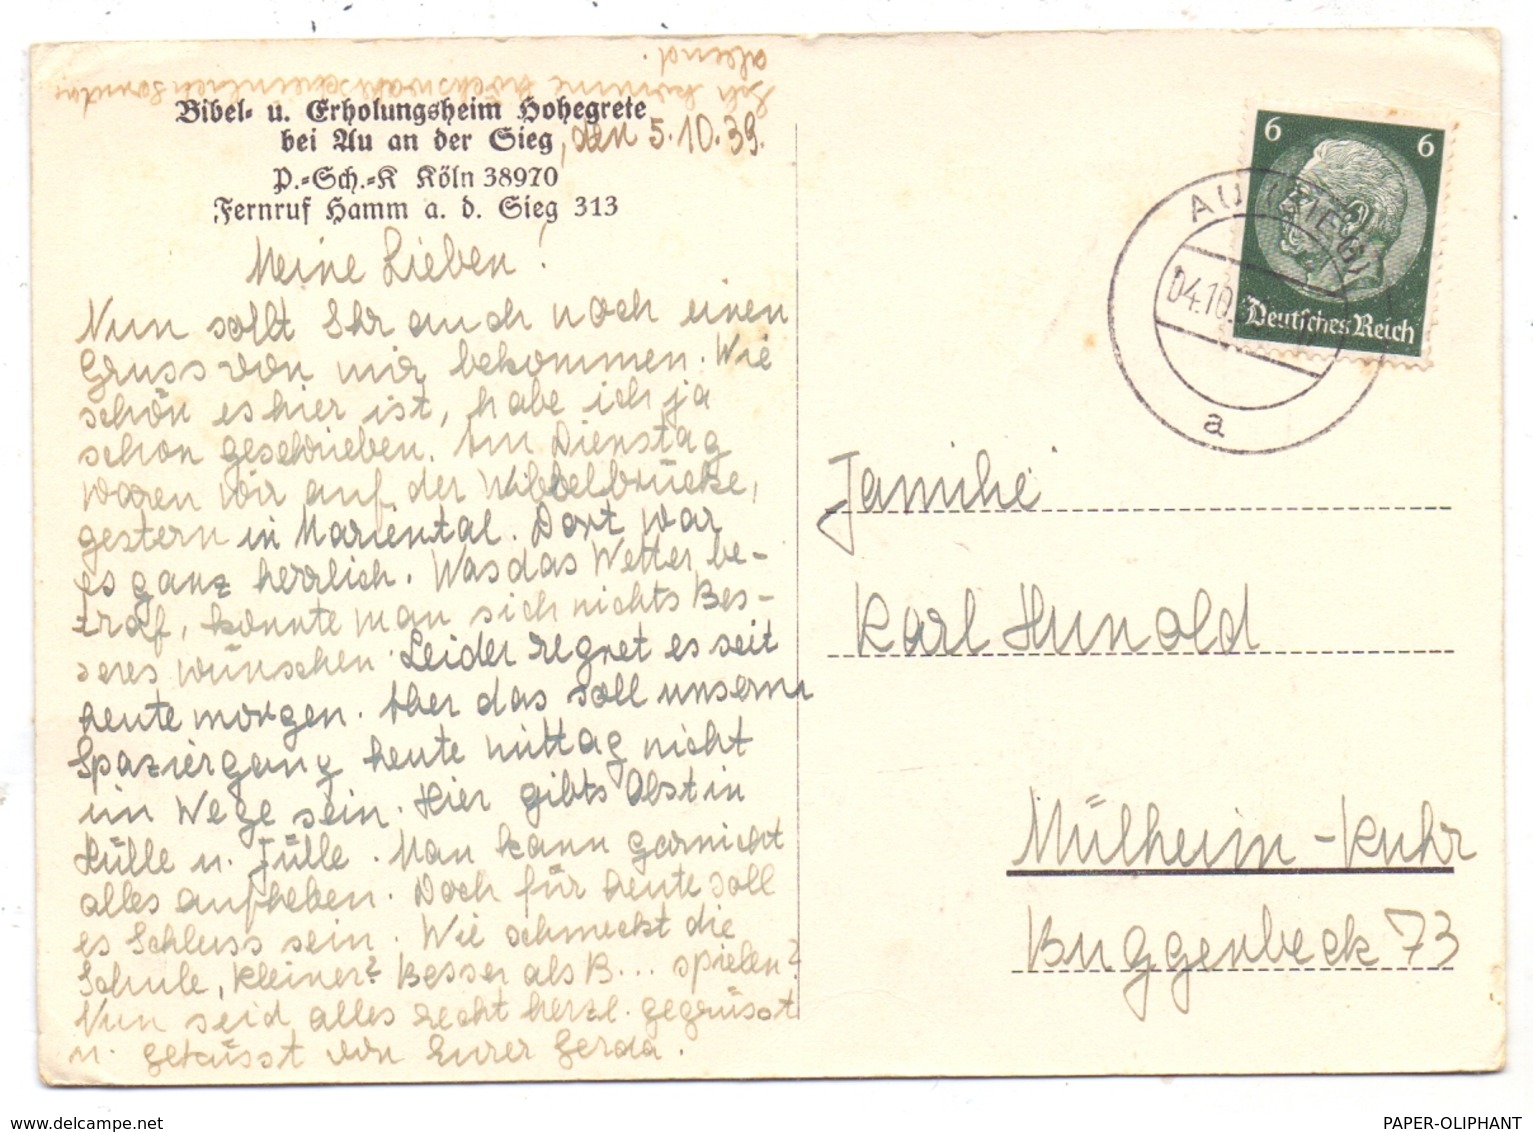 Ich komme höchstwahrscheinlich Sonntag
abend.
Bibel- u. Erholungsheim Hohegrete
bei Au an der Sieg, den 5.10.39.
P.-Sch.-K Köln 38970
Fernruf Hamm a. d. Sieg 313
Meine Lieben!
Nun sollt Ihr auch noch einen
Gruss von mir bekommen. Wie
schön es hier ist, habe ich ja
schon geschrieben. Am Dienstag
waren wir auf der Nibbelbrücke,
gestern in Mariental. Dort war
es ganz herrlich. Was das Wetter be-
traf, konnte man sich nichts Bes-
seres wünschen. Leider regnet es seit
heute morgen. Aber das soll unserm
Spaziergang heute mittag nicht
im Wege sein. Hier gibts Obst in
Hülle u. Fülle. Man kann garnicht
alles aufheben. Doch für heute soll
es Schluss sein. Wie schmeckt die
Schule, Kleiner? Besser als B... spielen?
Nun seid alles recht herzl. gegrüsst
u. geküsst von Eurer Gerda.
6 6
Deutsches Reich
AU (SIEG)
04.10.
a
Familie
Karl Hunold
Mülheim-Ruhr
Buggenbeck 73
www.delcampe.net
PAPER-OLIPHANT